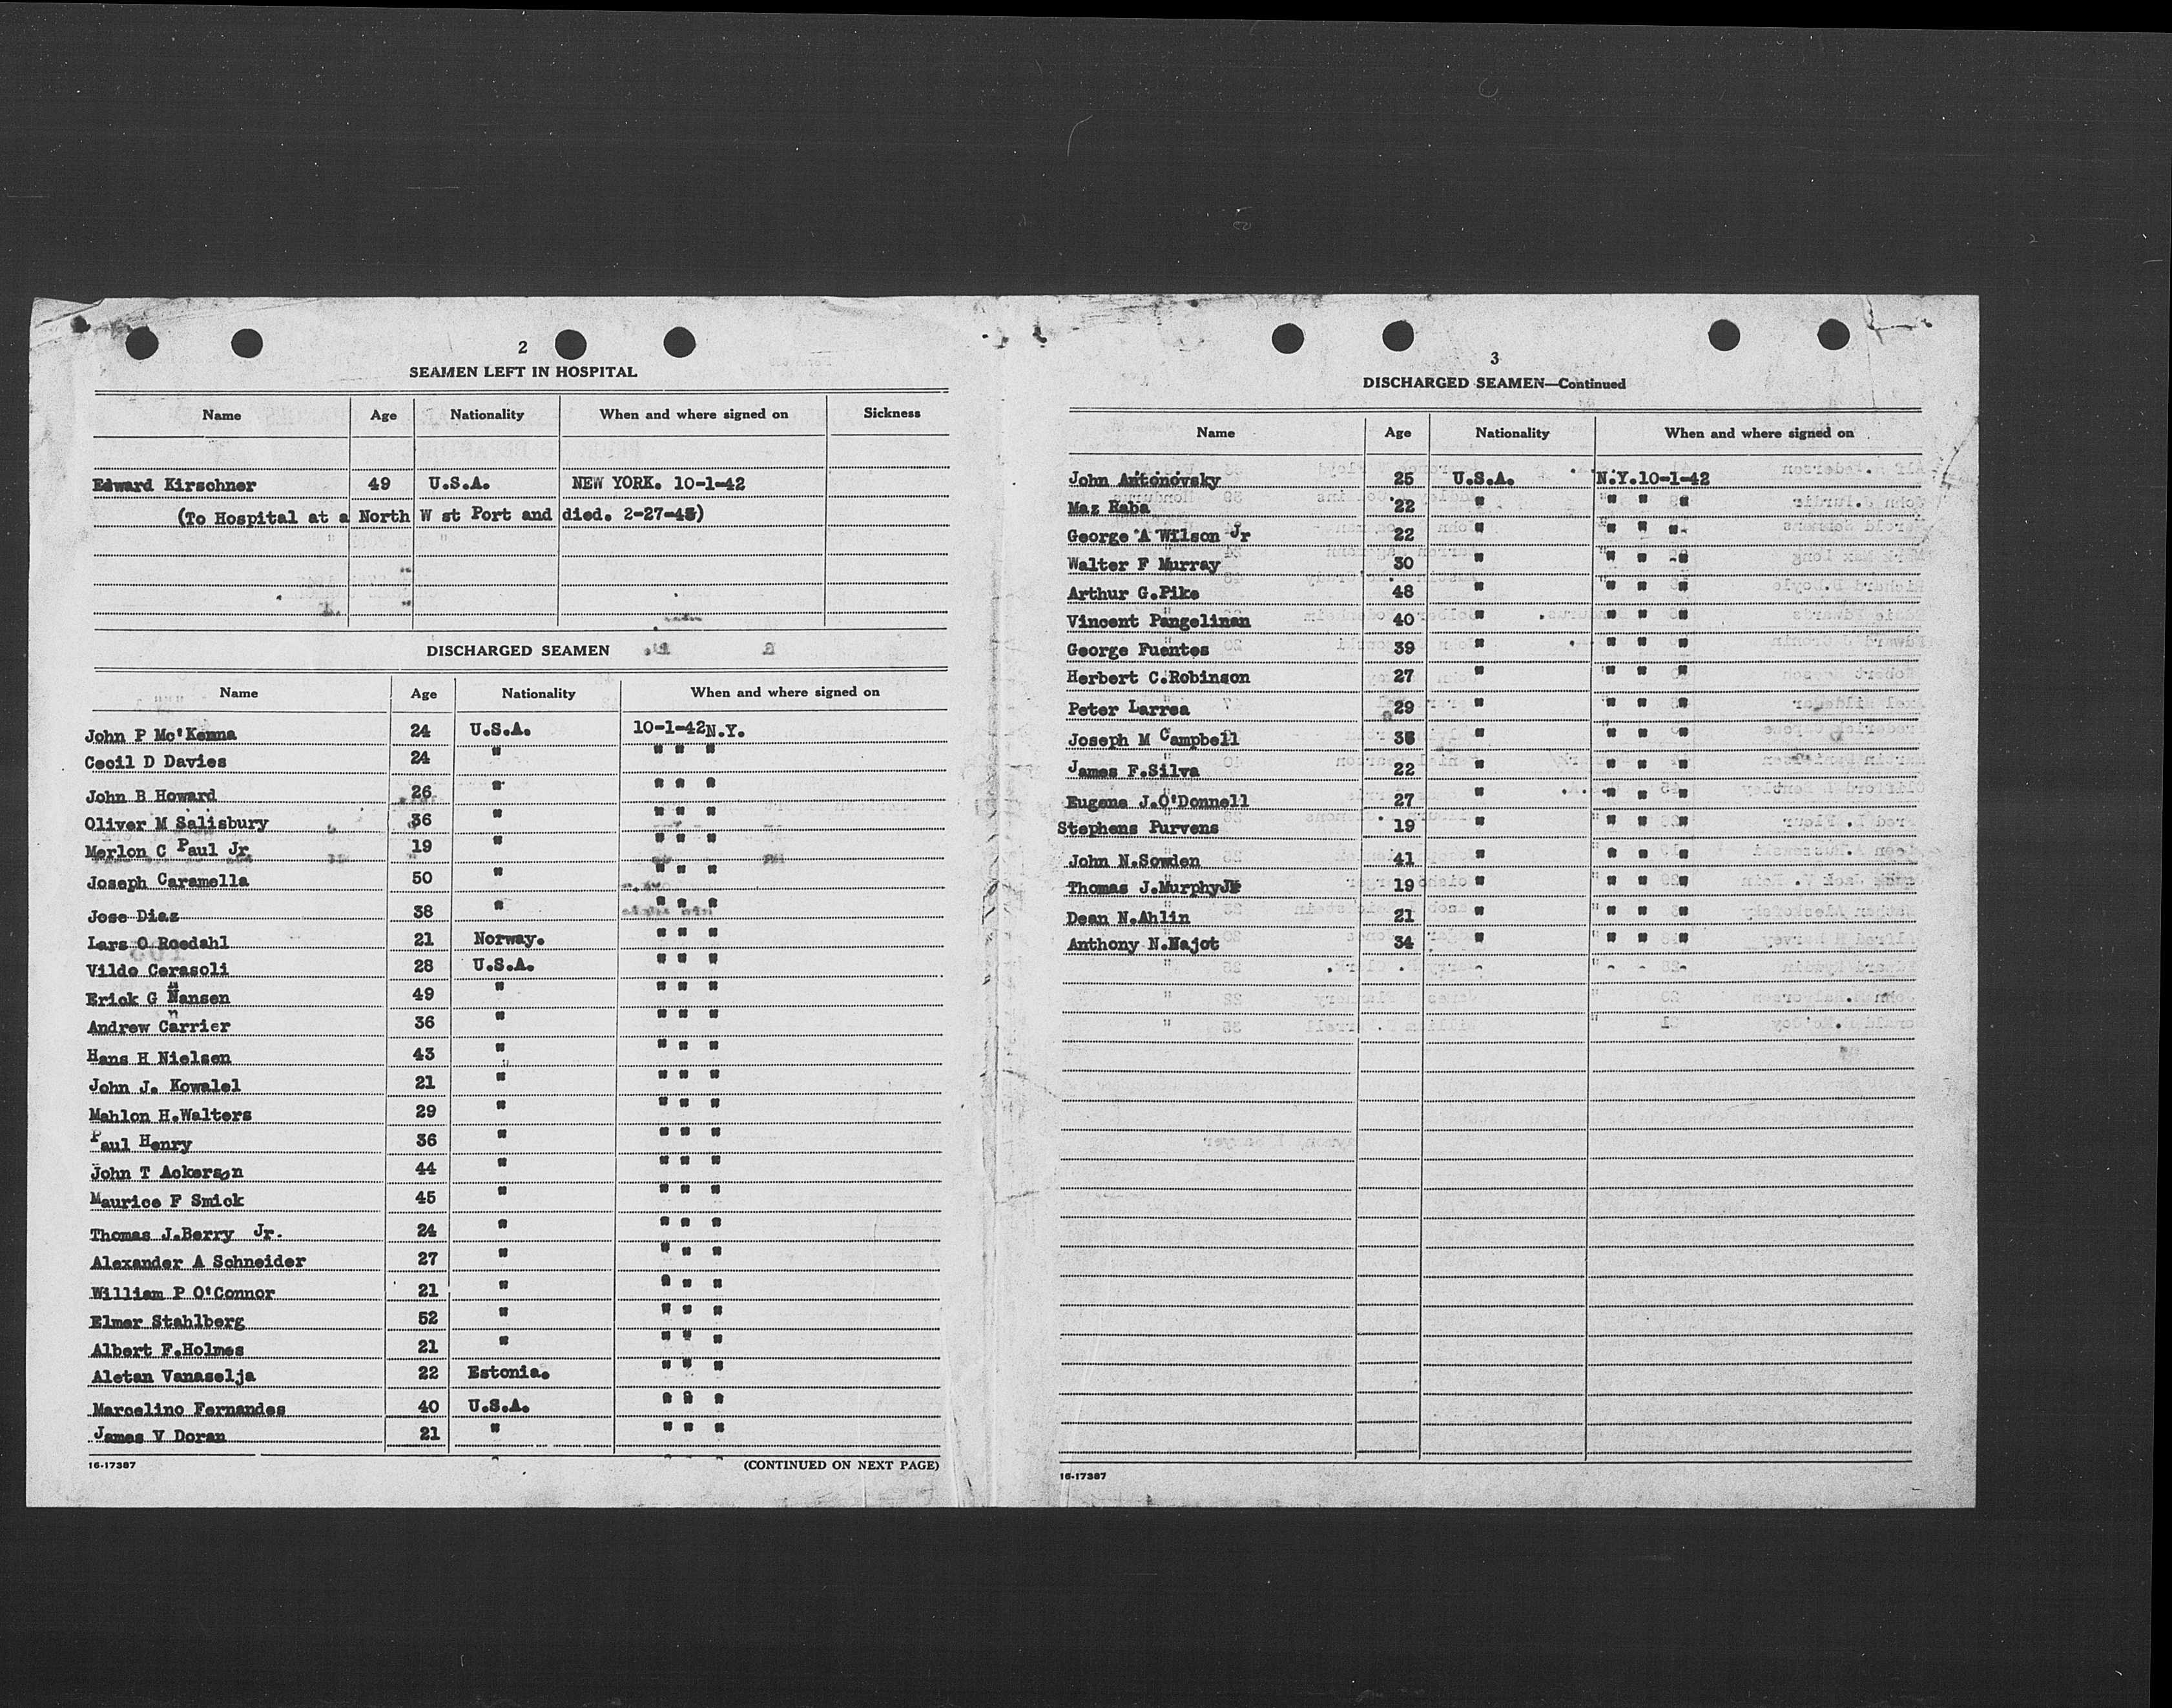 2
SEAMEN LEFT IN HOSPITAL
Name Age Nationality When and where signed on Sickness
Edward Kirschner 49 U.S.A. NEW YORK. 10-1-42
(To Hospital at a North W st Port and died. 2-27-43)
DISCHARGED SEAMEN
Name Age Nationality When and where signed on
John P Mc'Kenna 24 U.S.A. 10-1-42 N.Y.
Cecil D Davies 24 " " " "
John B Howard 26 " " " "
Oliver M Salisbury 36 " " " "
Merlon C Paul Jr 19 " " " "
Joseph Caramella 50 " " " "
Jose Diaz 38 " " " "
Lars O Roedahl 21 Norway. " " "
Vildo Cerasoli 28 U.S.A. " " "
Erick G Hansen 49 " " " "
Andrew Carrier 36 " " " "
Hans H Nielsen 43 " " " "
John J. Kowalel 21 " " " "
Mahlon H.Walters 29 " " " "
Paul Henry 36 " " " "
John T Ackerson 44 " " " "
Maurice F Smick 45 " " " "
Thomas J.Berry Jr. 24 " " " "
Alexander A Schneider 27 " " " "
William P O'Connor 21 " " " "
Elmer Stahlberg 52 " " " "
Albert F.Holmes 21 " " " "
Aletan Vanaselja 22 Estonia. " " "
Marcelino Fernandes 40 U.S.A. " " "
James V Doran 21 " " " "
16-17387 (CONTINUED ON NEXT PAGE)
3
DISCHARGED SEAMEN—Continued
Name Age Nationality When and where signed on
John Antonovsky 25 U.S.A. N.Y.10-1-42
Maz Raba 22 " " " "
George A Wilson Jr 22 " " " "
Walter F Murray 30 " " " "
Arthur G.Pike 48 " " " "
Vincent Pangelinan 40 " " " "
George Fuentes 39 " " " "
Herbert C.Robinson 27 " " " "
Peter Larrea 29 " " " "
Joseph M Campbell " " " "
James F.Silva 22 " " " "
Eugene J.O'Donnell 27 " " " "
Stephens Purvens 19 " " " "
John N.Sowden 41 " " " "
Thomas J.Murphy Jr 19 " " " "
Dean N.Ahlin 21 " " " "
Anthony N.Najot 34 " " " "
16-17387